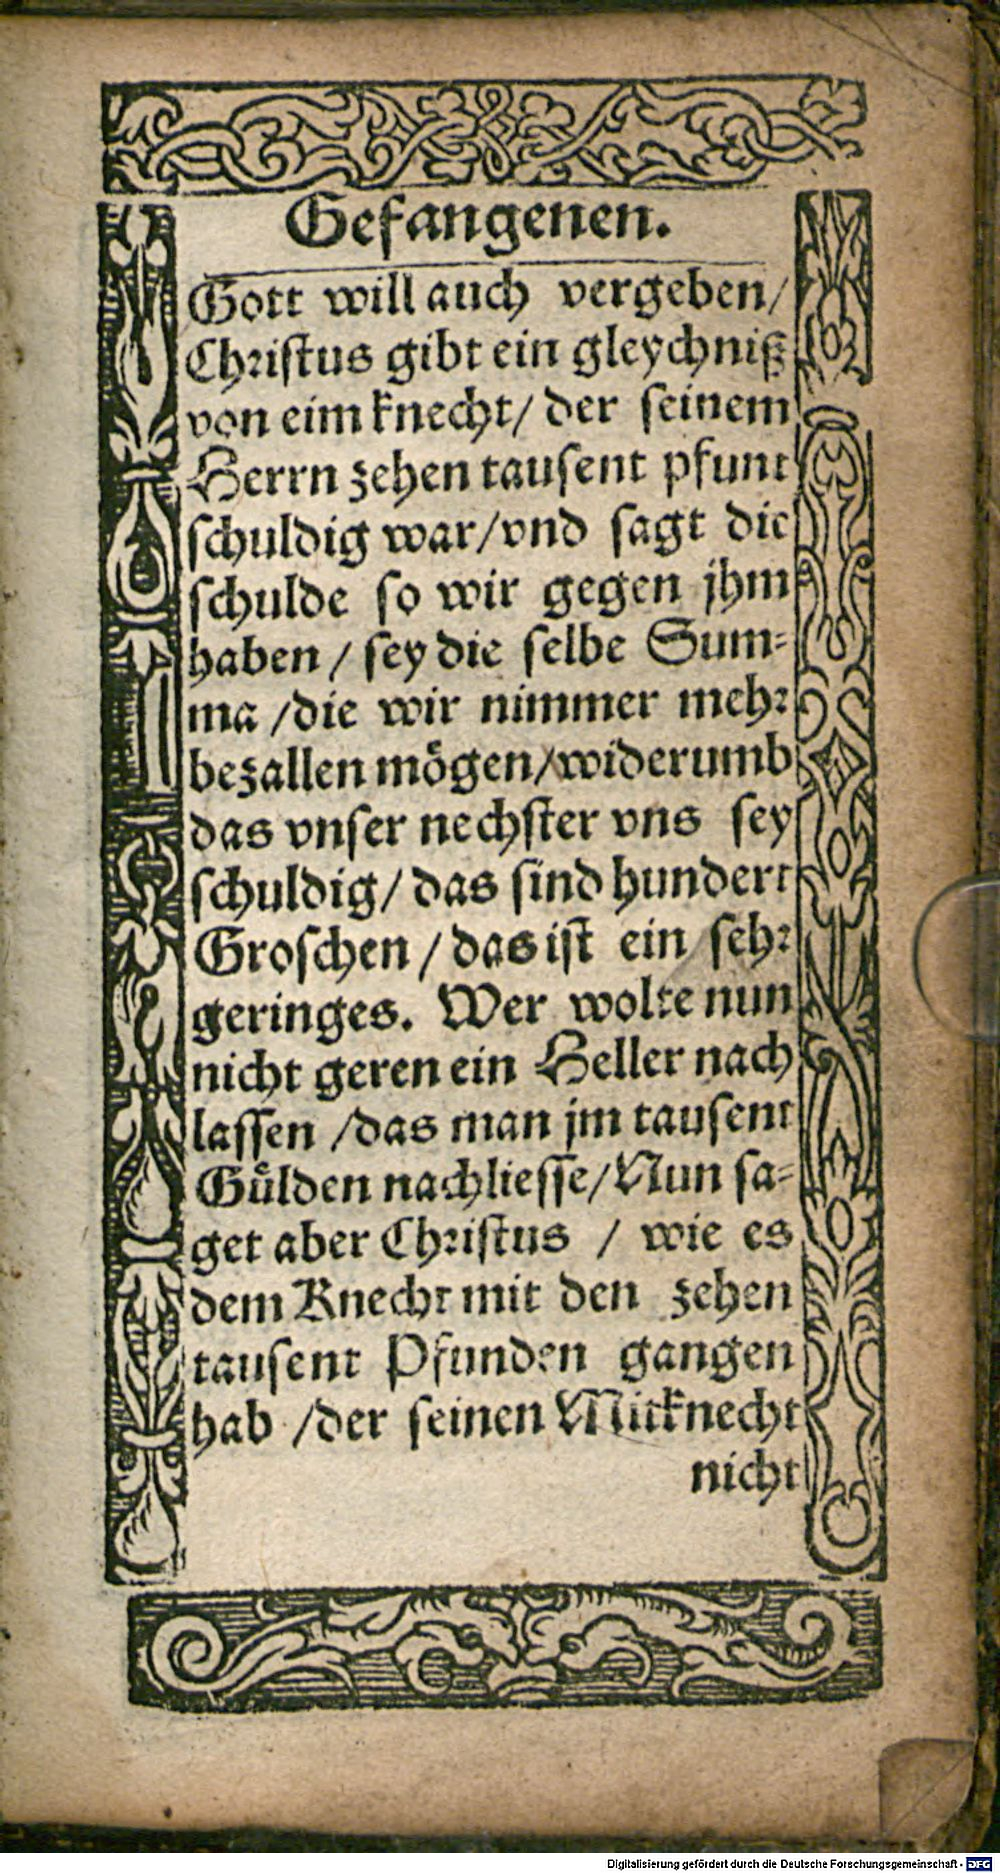 Gefangenen.
Gott will auch vergeben/
Christus gibt ein gleychniß
von eim knecht/ der seinem
Herrn zehen tausent pfunt
schuldig war/vnd sagt die
schulde so wir gegen jhm
haben / sey die selbe Sum-
ma /die wir nimmer mehr
bezallen mögen/widerumb
das vnser nechster vns sey
schuldig/ das sind hundert
Groschen / das ist ein sehr
geringes. Wer wolte nun
nicht geren ein Heller nach
lassen /das man jm tausent
Gůlden nachliesse/Nun sa-
get aber Christus / wie es
dem Knecht mit den zehen
tausent Pfunden gangen
hab /der seinen Mitknecht
nicht
Digitalisierung gefördert durch die Deutsche Forschungsgemeinschaft - DFG